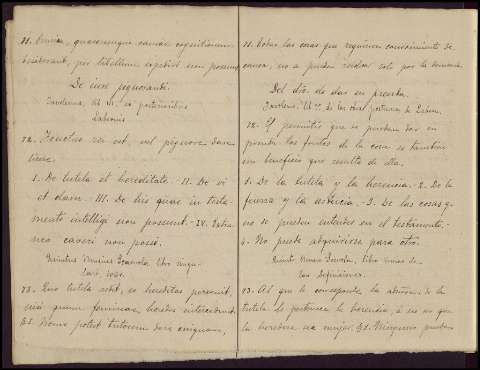 71. Omnia, quaecumque causae cognitionem
desiderant, per libellum expediri non possunt
De iure pignorante.
Javolenus, lib. II. ex posterioribus
Labeonis
72. Fructus rei est, vel pignori dare
licere.
I. De tutela et hereditate. - II. De vi
et clam. - III. De his quae in testa-
mento intelligi non possunt. - IV. Extra-
neo caveri non posse.
Quintus Mucius Scaevola, libro singu-
lari,
73. Quo tutela redit, eo hereditas pervenit,
nisi quum feminae heredes intercedunt.
§1. Nemo potest tutorem dare cuiquam,
71. Todas las cosas que requieren conocimiento de
causa, no se pueden por la demanda
Del de dar en prenda.
Javoleno; lib. de las obras postumas de Labeon.
72. El permitir que se puedan dar en
prenda los frutos de la cosa es tambien
un beneficio que resulta de ella.
1. De la tutela y la herencia. - 2. De la
fuerza y la astucia. - 3. De las cosas q.
no se pueden entender en el testamento. -
4. No puede adquirirse para otro.
Quinto Mucio Scevola, libro unico de
las Definiciones.
73. Al que le corresponde la de la
tutela le pertenece la herencia, á no ser que
la heredera sea mujer. §1. Ninguno puede